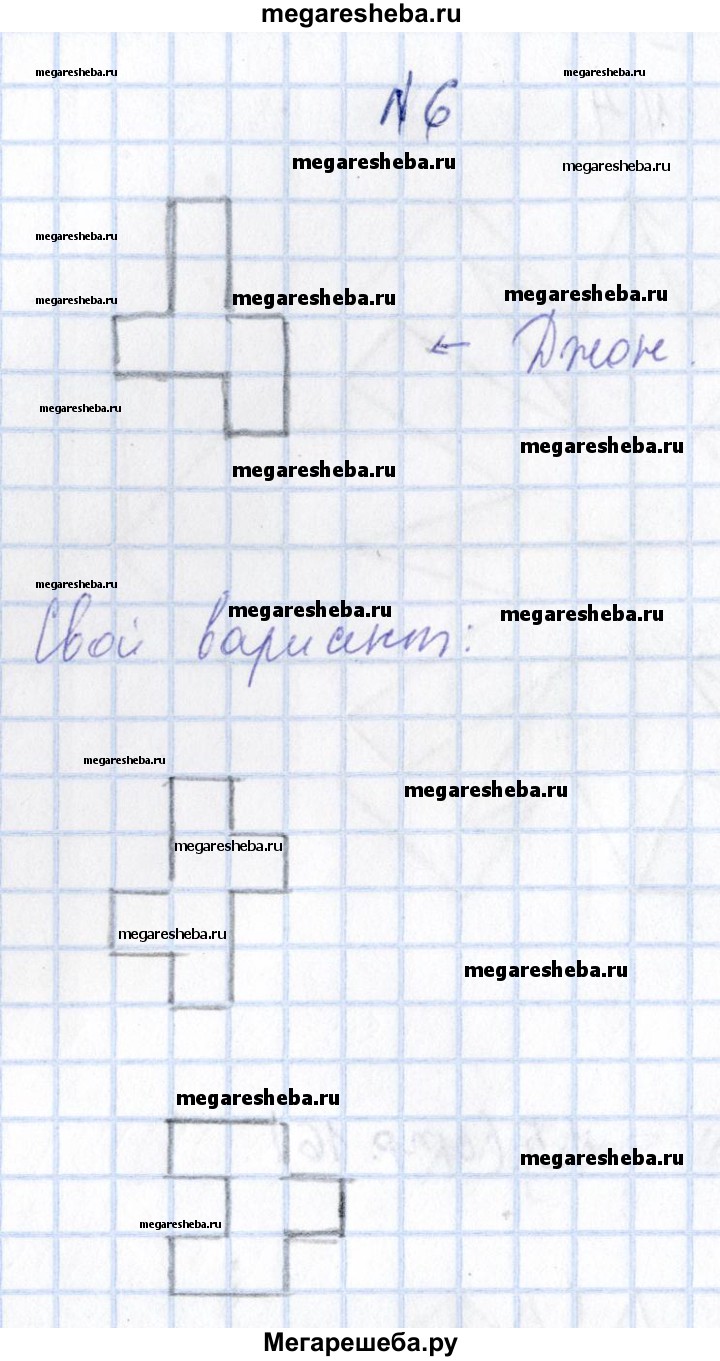 megaresheba.ru
megaresheba.ru megaresheba.ru
№ 6
megaresheba.ru megaresheba.ru
megaresheba.ru
megaresheba.ru megaresheba.ru megaresheba.ru
← Джон.
megaresheba.ru
megaresheba.ru
megaresheba.ru
megaresheba.ru
megaresheba.ru megaresheba.ru
Свой вариант:
megaresheba.ru
megaresheba.ru
megaresheba.ru
megaresheba.ru
megaresheba.ru
megaresheba.ru
megaresheba.ru
megaresheba.ru
Мегарешеба.ру